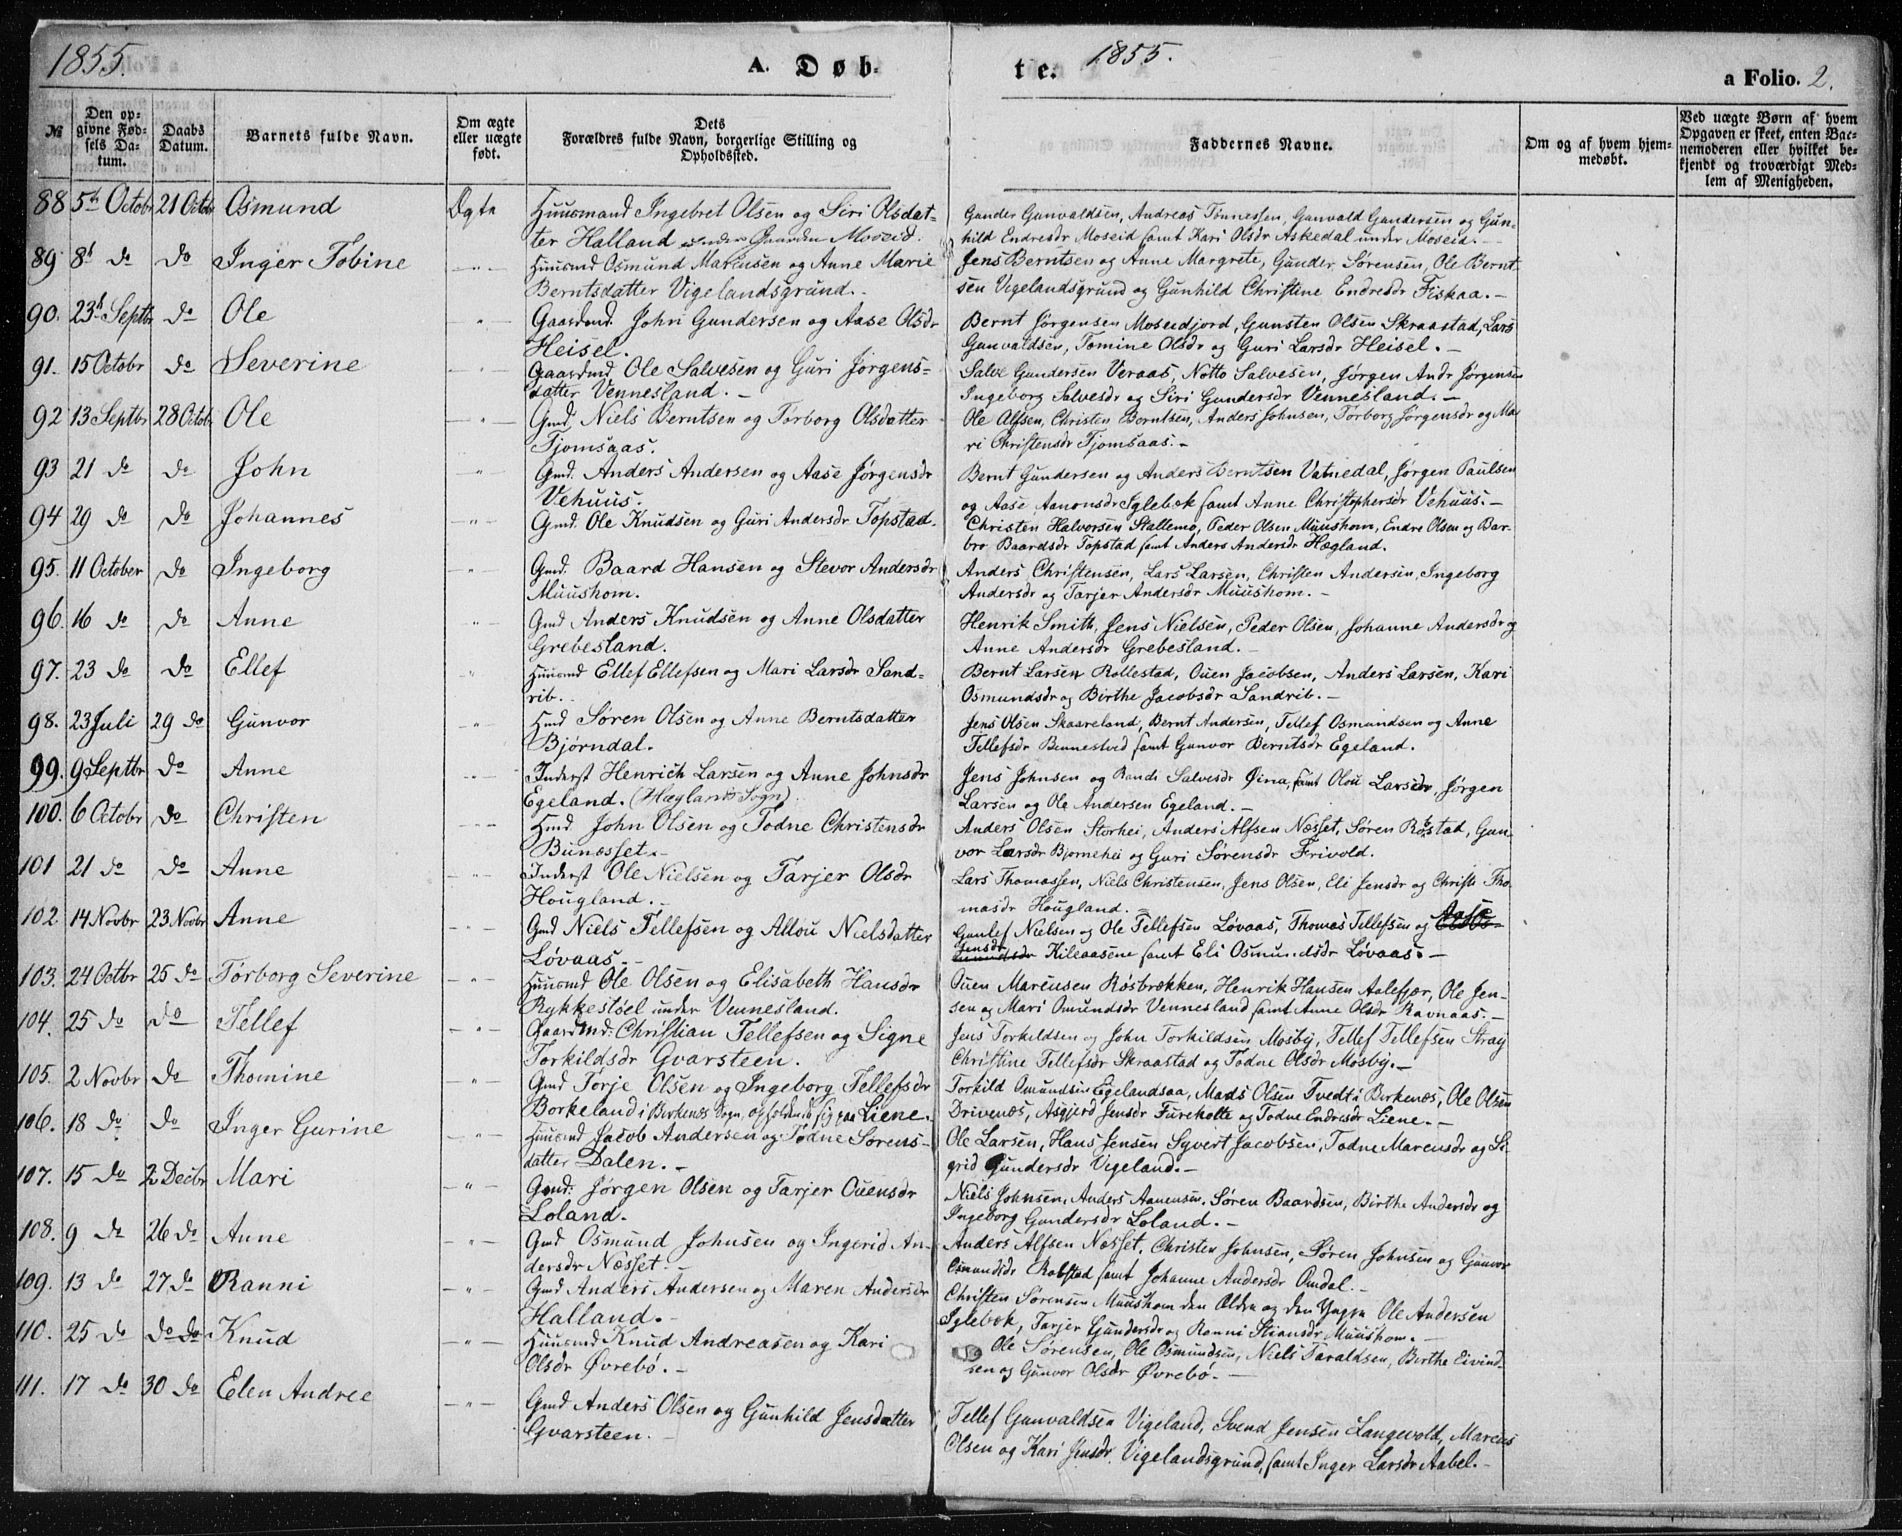 1855. A. Døb- te. 1855. a Folio. 2.
№ Den opgivne Fødsels Datum. Daabs Datum. Barnets fulde Navn. Om ægte eller uægte født. Dets Forældres fulde Navn, borgerlige Stilling og Opholdssted. Faddernes Navne. Om og af hvem hjemmedøbt. Ved uægte Børn af hvem Opgaven er skeet, enten Barnemoderen eller hvilket bekjendt og troværdigt Medlem af Menigheden.
88 5te Octobr 21 Octobr Osmund Ægte Huusmand Ingebret Olsen og Siri Olsdat- Gunder Gunvaldsen, Andreas Tønnessen, Gunvald Gundersen og Gun-
ter Halland under Gaarden Moseid. hild Endresdr Moseid samt Kari Olsdr Askedal under Moseid. -
89 8d do do Inger Tobine - " - Huusmd Osmund Marcusen og Anne Marie Jens Berntsen og Anne Margrete, Gunder Sørensen, Ole Bernt-
Berntsdatter Vigelandsgrund. - sen Vigelandsgrund og Gunhild Christine Endresdr Fiskaa. -
90. 23d Septbr do Ole " Gaardmd. John Gundersen og Aase Olsdr Bernt Jørgensen Moseidjord, Gunsten Olsen Skraastad, Lars
Heisel. Gunvaldsen, Tomine Olsdr og Guri Larsdr Heisel. -
91. 15 Octobr do Severine - " - Gaardmd Ole Salvesen og Guri Jørgens- Salve Gundersen Veraas, Notto Salvesen, Jørgen Andr Jørgensen
datter Vennesland. - Ingeborg Salvesdr og Siri Gundersdr Vennesland. -
92 13 Septbr 28 Octobr Ole - " - Gmd, Niels Berntsen og Torborg Olsdatter Ole Alfsen, Christen Berntsen, Anders Johnsen, Torborg Jørgensdr og Ma-
Tjomsaas. ri Christensdr Tjomsaas. -
93 21 do do John " Gmd. Anders Andersen og Aase Jørgensdr Bernt Gundersen og Anders Berntsen Vatnedal, Jørgen Paulsen
Vehuus. og Aase Aanonsdr Iglebæk samt Anne Christophersdr Vehuus. -
94 29 do do Johannes - " - Gmd. Ole Knudsen og Guri Andersdr Topstad. Christen Halvorsen Stallemo, Peder Olsen Muushom, Endre Olsen og Bar-
bro Baardsdr Topstad samt Anders Andersdr Hægland.
95. 11 October do Ingeborg " Gmd. Baard Hansen og Stevor Andersdr Anders Christensen, Lars Larsen, Christen Andersen, Ingeborg
Muushom. Andersdr og Tarjer Andersdr Muushom. -
96. 16 do do Anne - " - Gmd Anders Knudsen og Anne Olsdatter Henrik Smith, Jens Nielsen, Peder Olsen, Johanne Andersdr og
Grebesland. Anne Andersdr Grebesland. -
97. 23 do do Ellef - " - Huusmd Ellef Ellefsen og Mari Larsdr Sand- Bernt Larsen Rollestad, Ouen Jacobsen, Anders Larsen, Kari
rib. Osmundsdr og Birthe Jacobsdr Sandrib. -
98. 23 Juli 29 do Gunvor - " - Hmd Søren Olsen og Anne Berntsdatter Jens Olsen Skaareland, Bernt Andersen, Tellef Osmundsen og Anne
Bjørndal. Tellefsdr Bennestved samt Gunvor Berntsdr Egeland.
99. 9 Septbr do Anne - " - Inderst Henrich Larsen og Anne Johnsdr Jens Johnsen og Randi Salvesdr Øina, samt Olou Larsdr, Jørgen
Egeland. (Hæglands Sogn) Larsen og Ole Andersen Egeland. -
100. 6 Octobr do Christen - " - Hmd John Olsen og Todne Christensdr Anders Olsen Storhei, Anders Alfsen Næsset, Søren Robstad, Gun-
Bunæsset. vor Larsdr Bjornehei og Guri Sørensdr Frivold.
101 21 do do Anne - " - Inderst Ole Nielsen og Tarjer Olsdr Lars Thomassen, Niels Christensen, Jens Olsen, Eli Jensdr og Christi Tho-
Hougland. masdr Hougland. =
102. 14 Novbr 23 Novbr Anne - " - Gmd Niels Tellefsen og Allou Nielsdatter Gunlef Nielsen og Ole Tellefsen Løvaas, Thomas Tellefsen og Aase
Løvaas. - Jensdr Kileaasene samt Eli Osmundsdr Løvaas. -
103. 24 Octbr 25 do Torborg Severine - " - Huusmd Ole Olsen og Elisabeth Hansdr Ouen Marcusen Røsbrækken, Henrik Hansen Aalefjær, Ole Jen-
Rykkestøel under Vennesland. sen og Mari Omundsdr Vennesland samt Anne Olsdr Ravnaas. -
104. 25 do do Tellef - " - Gaardmd. Christian Tellefsen og Signe Jens Torkildsen og John Torkildsen Mosby, Tellef Tellefsen Stray
Torkildsdr Gvarsteen. Christine Tellefsdr Skraastad og Todne Olsdr Mosby. -
105. 2 Novbr do Thomine - " - Gmd Torje Olsen og Ingeborg Tellefsdr Torkild Omundsen Egelandsaa, Mads Olsen Tvedt i Birkenæs, Ole Olsen
Borkeland i Birkenæs Sogn, opholdende sig paa Liene. Drivenes, Asgjerd Jensdr Fureholte og Todne Endresdr Liene. -
106. 18 do do Inger Gurine - " - Huusmd Jacob Andersen og Todne Sørens- Ole Larsen, Hans Jensen Syvert Jacobsen, Todne Marcusdr og Si-
datter Dalen. - grid Gundersdr Vigeland. -
107. 15 do 2 Decbr Mari - " - Gmd: Jørgen Olsen og Tarjer Ouensdr Niels Johnsen, Anders Aanensen, Søren Baardsen, Birthe Andersdr og
Loland. Ingeborg Gundersdr Loland. -
108. 9 do 26 do Anne - " - Gmd Osmund Johnsen og Ingerid An- Anders Alfsen Næsset, Christen Johnsen, Søren Johnsen og Gunvor
dersdr Næsset. - Osmundsdr Robstad samt Johanne Andersdr Omdal. -
109. 13 do 27 do Ranni - " - Gmd Anders Andersen og Maren Andersdr Christen Sørensen Muushom den Ældre og den Yngre Ole Andersen
Halland. - Iglebæk, Tarjer Gundersdr og Ranni Stiansdr Muushom. -
110. 25 do do do Knud - " - Huusmd Knud Andreasen og Kari Ole Sørensen, Ole Osmundsen, Niels Taraldsen, Birthe Eivind-
Olsdr Øvrebø. - sen og Gunvor Olsdr Øvrebø. -
111. 17 do 30 do Elen Andree - " - Gmd Anders Olsen og Gunhild Jensdatter Tellef Gunvaldsen Vigeland, Svend Jensen Langevold, Marcus
Gvarsteen. - Olsen og Kari Jensdr. Vigelandsgrund, samt Inger Larsdr Aabel. -